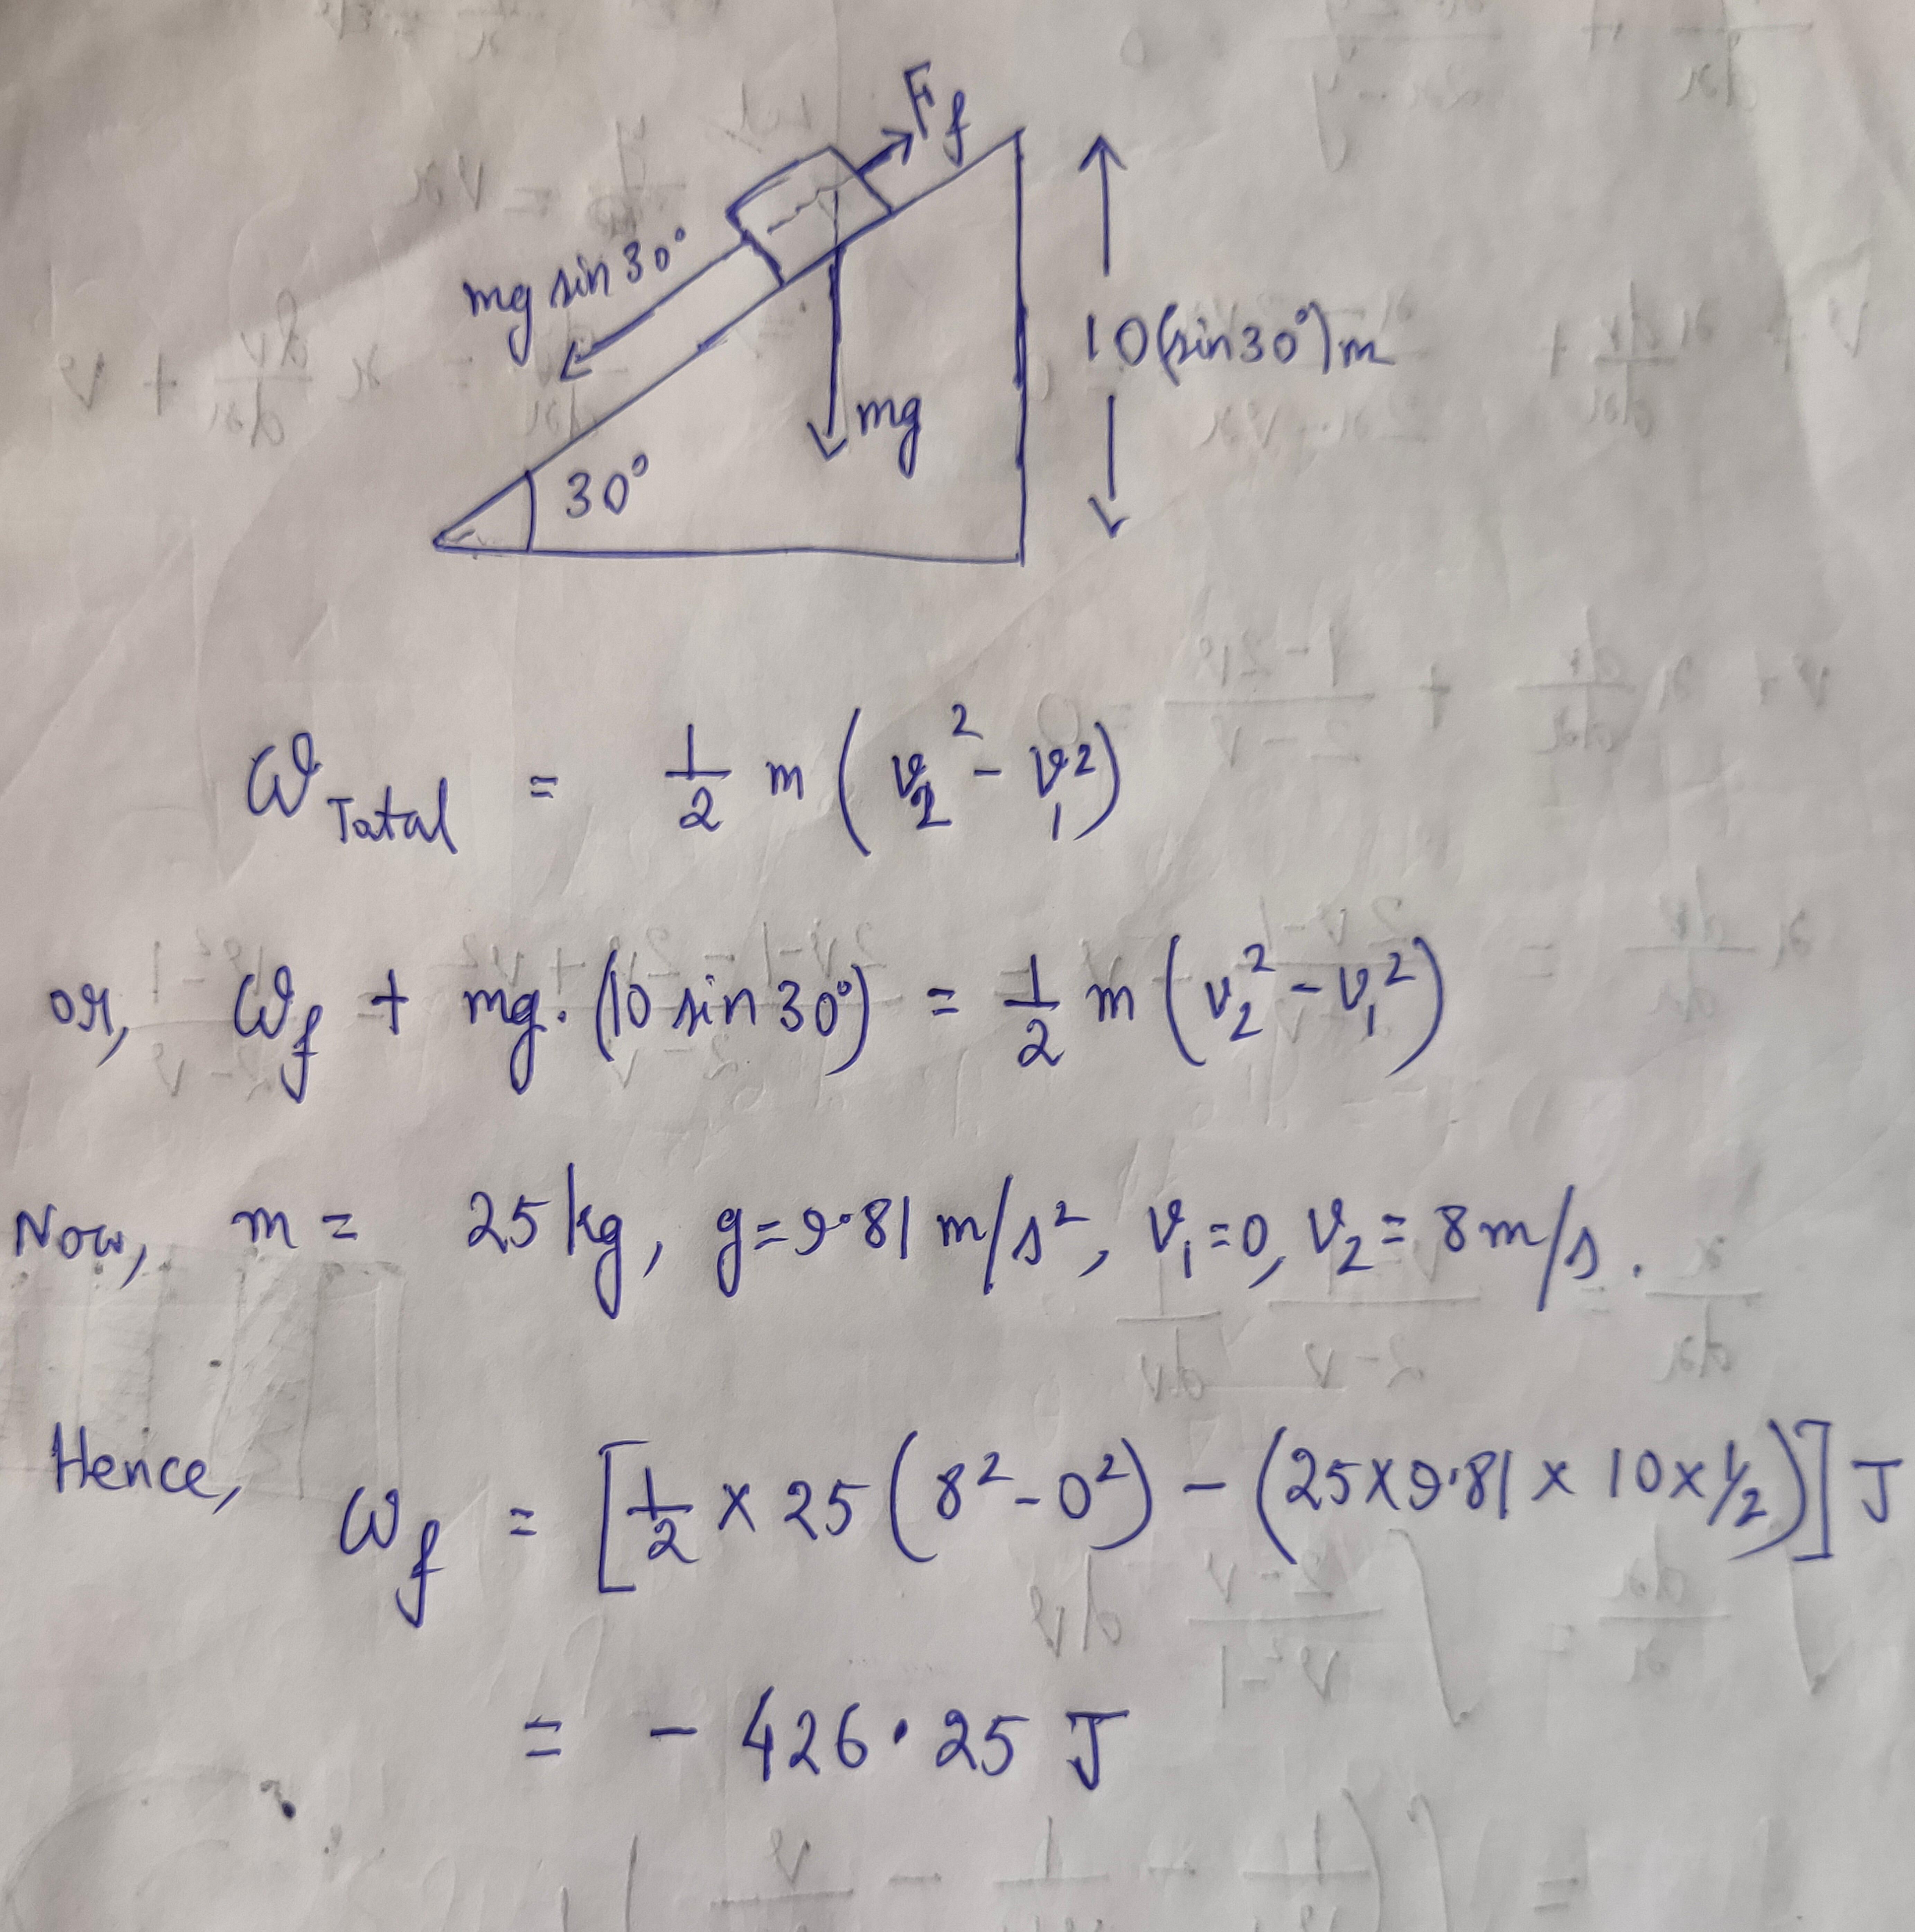 F_f
mg sin 30°
10(sin 30°) m
mg
30°
W_Total = 1/2 m (v_2^2 - v_1^2)
or, W_f + mg. (10 sin 30°) = 1/2 m (v_2^2 - v_1^2)
Now, m = 25 kg, g = 9.81 m/s^2, v_1 = 0, v_2 = 8 m/s.
Hence, W_f = [1/2 × 25 (8^2 - 0^2) - (25 × 9.81 × 10 × 1/2)] J
= - 426.25 J